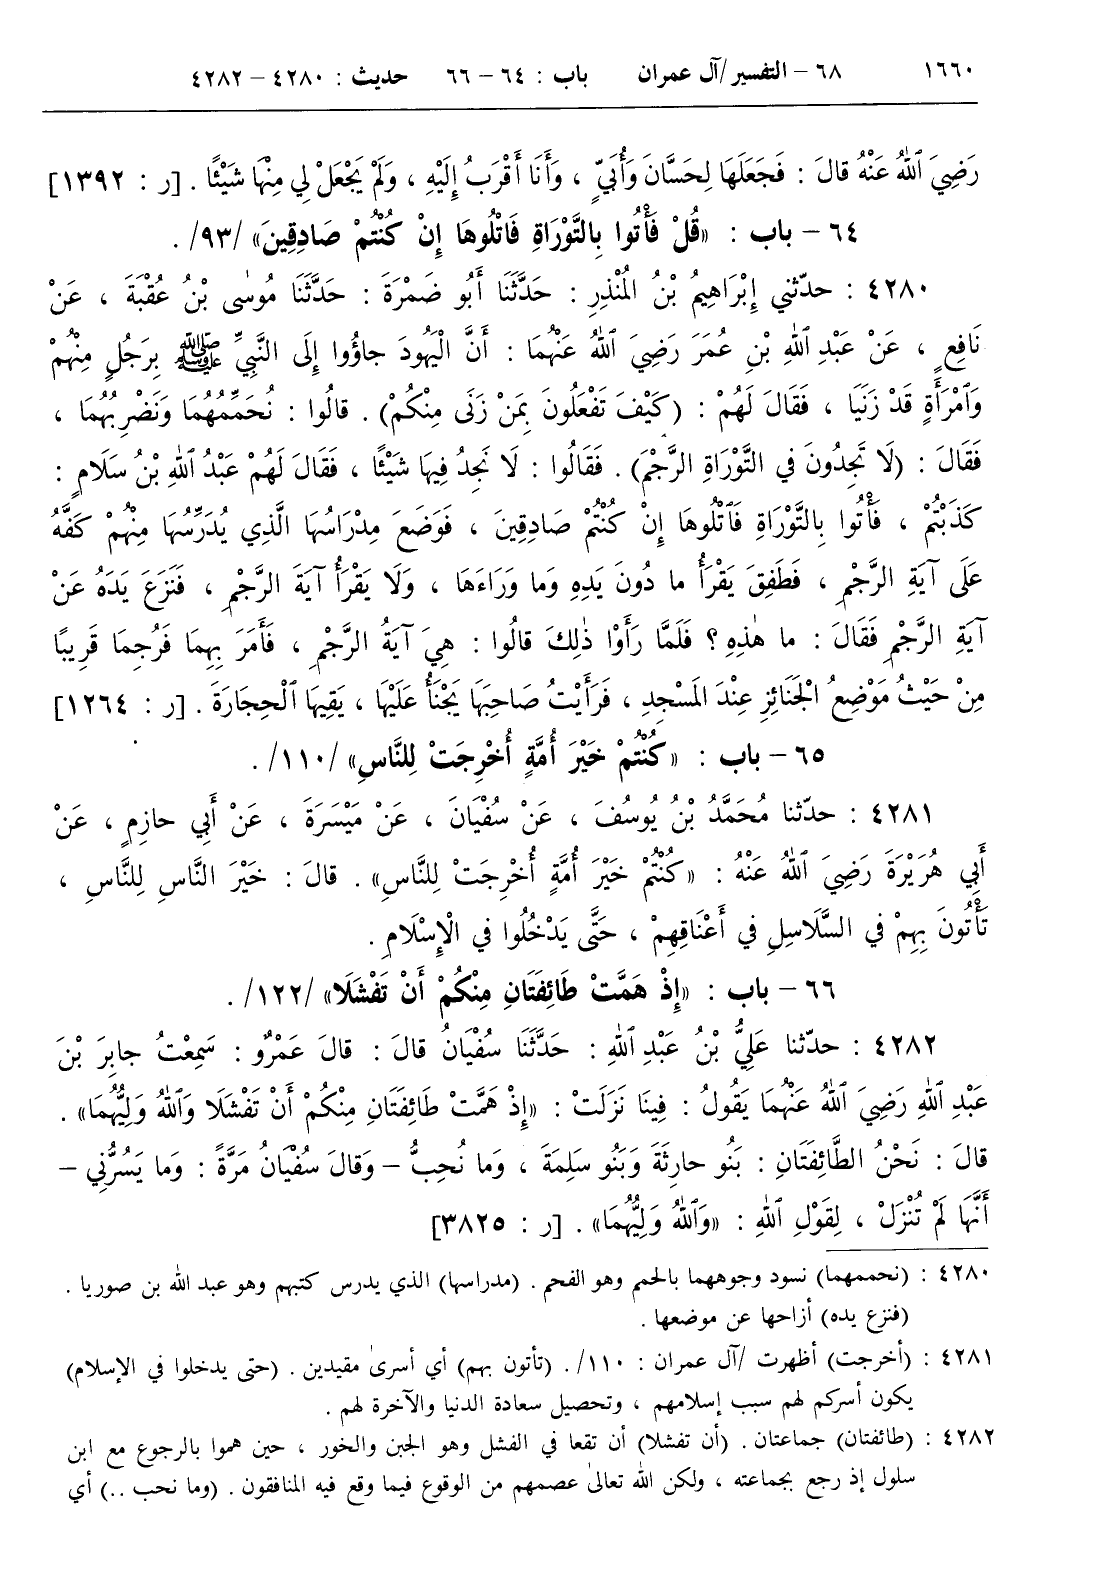 ١٦٦٠ ٦٨ – التفسير/آل عمران باب : ٦٤ – ٦٦ حديث : ٤٢٨٠ – ٤٢٨٢
رَضِيَ ٱللهُ عَنْهُ قالَ : فَجَعَلَهَا لِحَسَّانَ وَأُبَيٍّ ، وَأَنَا أَقْرَبُ إِلَيْهِ ، وَلَمْ يَجْعَلْ لِي مِنْهَا شَيْئًا . [ر : ١٣٩٢]
٦٤ – باب : «قُلْ فَأْتُوا بِالتَّوْرَاةِ فَاتْلُوهَا إِنْ كُنْتُمْ صَادِقِينَ» /٩٣/ .
٤٢٨٠ : حدّثني إِبْرَاهِيمُ بْنُ الْمُنْذِرِ : حَدَّثَنَا أَبُو ضَمْرَةَ : حَدَّثَنَا مُوسٰى بْنُ عُقْبَةَ ، عَنْ
نَافِعٍ ، عَنْ عَبْدِ ٱللهِ بْنِ عُمَرَ رَضِيَ ٱللهُ عَنْهُمَا : أَنَّ الْيَهُودَ جاؤُوا إِلَى النَّبِيِّ ﷺ بِرَجُلٍ مِنْهُمْ
وَٱمْرَأَةٍ قَدْ زَنَيَا ، فَقَالَ لَهُمْ : (كَيْفَ تَفْعَلُونَ بِمَنْ زَنَى مِنْكُمْ) . قالُوا : نُحَمِّمُهُمَا وَنَضْرِبُهُمَا ،
فَقَالَ : (لَا تَجِدُونَ في التَّوْرَاةِ الرَّجْمَ) . فَقَالُوا : لَا نَجِدُ فِيهَا شَيْئًا ، فَقَالَ لَهُمْ عَبْدُ ٱللهِ بْنُ سَلَامٍ :
كَذَبْتُمْ ، فَأْتُوا بِالتَّوْرَاةِ فَٱتْلُوهَا إِنْ كُنْتُمْ صَادِقِينَ ، فَوَضَعَ مِدْرَاسُهَا الَّذِي يُدَرِّسُهَا مِنْهُمْ كَفَّهُ
عَلَى آيَةِ الرَّجْمِ ، فَطَفِقَ يَقْرَأُ ما دُونَ يَدِهِ وَما وَرَاءَهَا ، وَلَا يَقْرَأُ آيَةَ الرَّجْمِ ، فَنَزَعَ يَدَهُ عَنْ
آيَةِ الرَّجْمِ فَقَالَ : ما هٰذِهِ ؟ فَلَمَّا رَأَوْا ذٰلِكَ قالُوا : هِيَ آيَةُ الرَّجْمِ ، فَأَمَرَ بِهِمَا فَرُجِمَا قَرِيبًا
مِنْ حَيْثُ مَوْضِعُ الْجَنَائِزِ عِنْدَ الْمَسْجِدِ ، فَرَأَيْتُ صَاحِبَهَا يَجْنَأُ عَلَيْهَا ، يَقِيهَا ٱلْحِجَارَةَ . [ر : ١٢٦٤]
٦٥ – باب : «كُنْتُمْ خَيْرَ أُمَّةٍ أُخْرِجَتْ لِلنَّاسِ» /١١٠/ .
٤٢٨١ : حدّثنا مُحَمَّدُ بْنُ يُوسُفَ ، عَنْ سُفْيَانَ ، عَنْ مَيْسَرَةَ ، عَنْ أَبِي حازِمٍ ، عَنْ
أَبِي هُرَيْرَةَ رَضِيَ ٱللهُ عَنْهُ : «كُنْتُمْ خَيْرَ أُمَّةٍ أُخْرِجَتْ لِلنَّاسِ» . قالَ : خَيْرَ النَّاسِ لِلنَّاسِ ،
تَأْتُونَ بِهِمْ في السَّلَاسِلِ في أَعْنَاقِهِمْ ، حَتَّى يَدْخُلُوا في الْإِسْلَامِ .
٦٦ – باب : «إِذْ هَمَّتْ طَائِفَتَانِ مِنْكُمْ أَنْ تَفْشَلَا» /١٢٢/ .
٤٢٨٢ : حدّثنا عَلِيُّ بْنُ عَبْدِ ٱللهِ : حَدَّثَنَا سُفْيَانُ قالَ : قالَ عَمْرٌو : سَمِعْتُ جابِرَ بْنَ
عَبْدِ ٱللهِ رَضِيَ ٱللهُ عَنْهُمَا يَقُولُ : فِينَا نَزَلَتْ : «إِذْ هَمَّتْ طَائِفَتَانِ مِنْكُمْ أَنْ تَفْشَلَا وَٱللهُ وَلِيُّهُمَا» .
قالَ : نَحْنُ الطَّائِفَتَانِ : بَنُو حارِثَةَ وَبَنُو سَلِمَةَ ، وَما نُحِبُّ – وَقالَ سُفْيَانُ مَرَّةً : وَما يَسُرُّنِي –
أَنَّهَا لَمْ تُنْزَلْ ، لِقَوْلِ ٱللهِ : «وَٱللهُ وَلِيُّهُمَا» . [ر : ٣٨٢٥]
٤٢٨٠ : (نحممهما) نسود وجوههما بالحمم وهو الفحم . (مدراسها) الذي يدرس كتبهم وهو عبد الله بن صوريا .
(فنزع يده) أزاحها عن موضعها .
٤٢٨١ : (أخرجت) أظهرت /آل عمران : ١١٠/ . (تأتون بهم) أي أسرىٰ مقيدين . (حتى يدخلوا في الإسلام)
يكون أسركم لهم سبب إسلامهم ، وتحصيل سعادة الدنيا والآخرة لهم .
٤٢٨٢ : (طائفتان) جماعتان . (أن تفشلا) أن تقعا في الفشل وهو الجبن والخور ، حين هموا بالرجوع مع ابن
سلول إذ رجع بجماعته ، ولكن الله تعالىٰ عصمهم من الوقوع فيما وقع فيه المنافقون . (وما نحب ..) أي